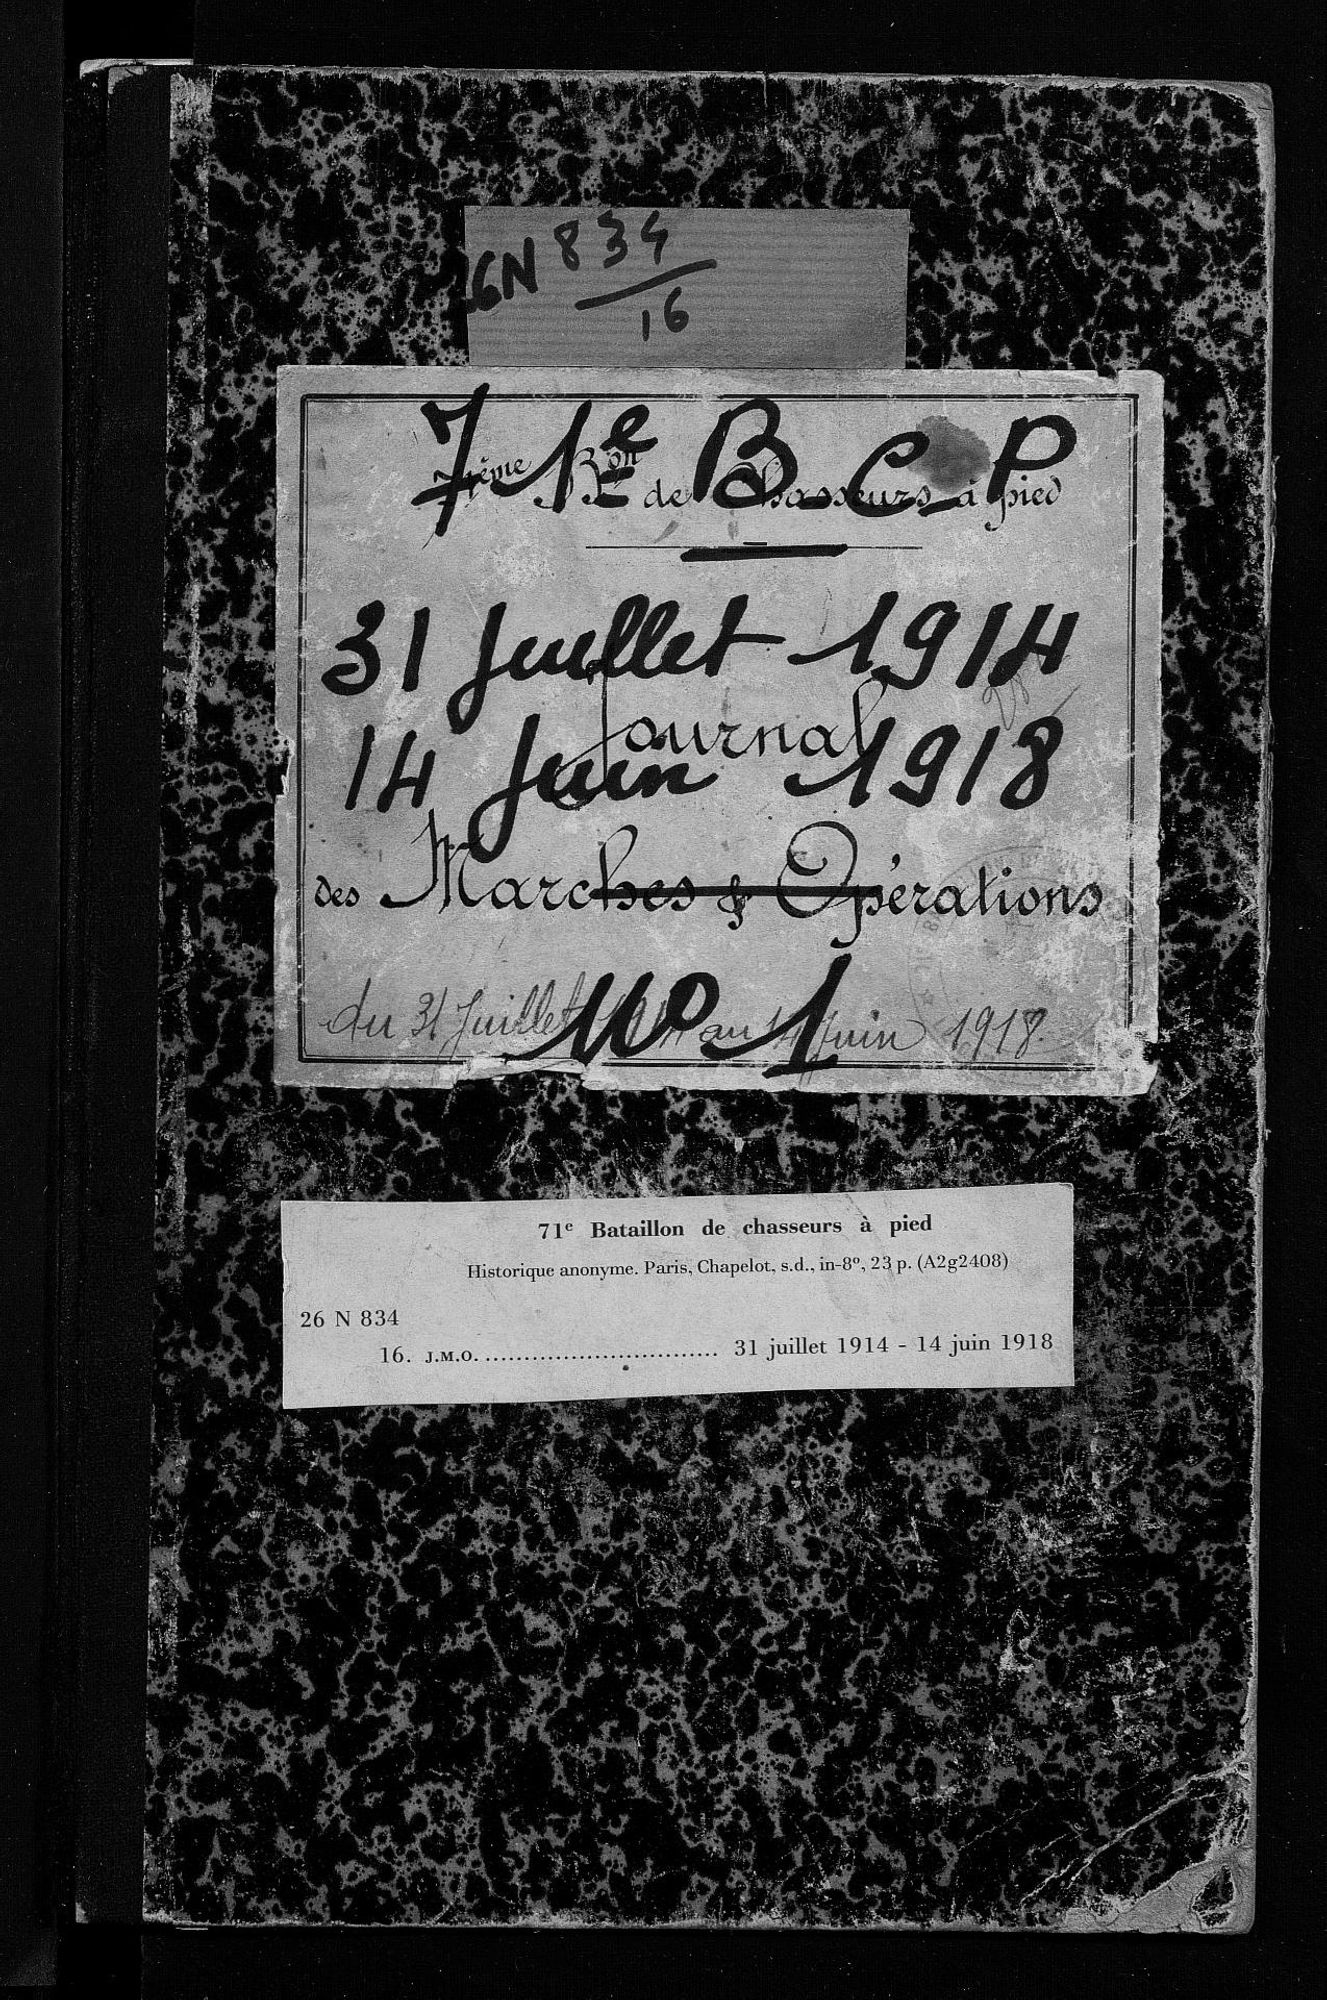 6N 834
16
71e B.C.P
71ème Bon de Chasseurs à pied
31 Juillet 1914
Journal
14 Juin 1918
des Marches & Opérations
du 31 Juillet 1914 au 14 Juin 1918.
No 1
71e Bataillon de chasseurs à pied
Historique anonyme. Paris, Chapelot, s.d., in-8o, 23 p. (A2g2408)
26 N 834
16. J.M.O. .............................. 31 juillet 1914 - 14 juin 1918